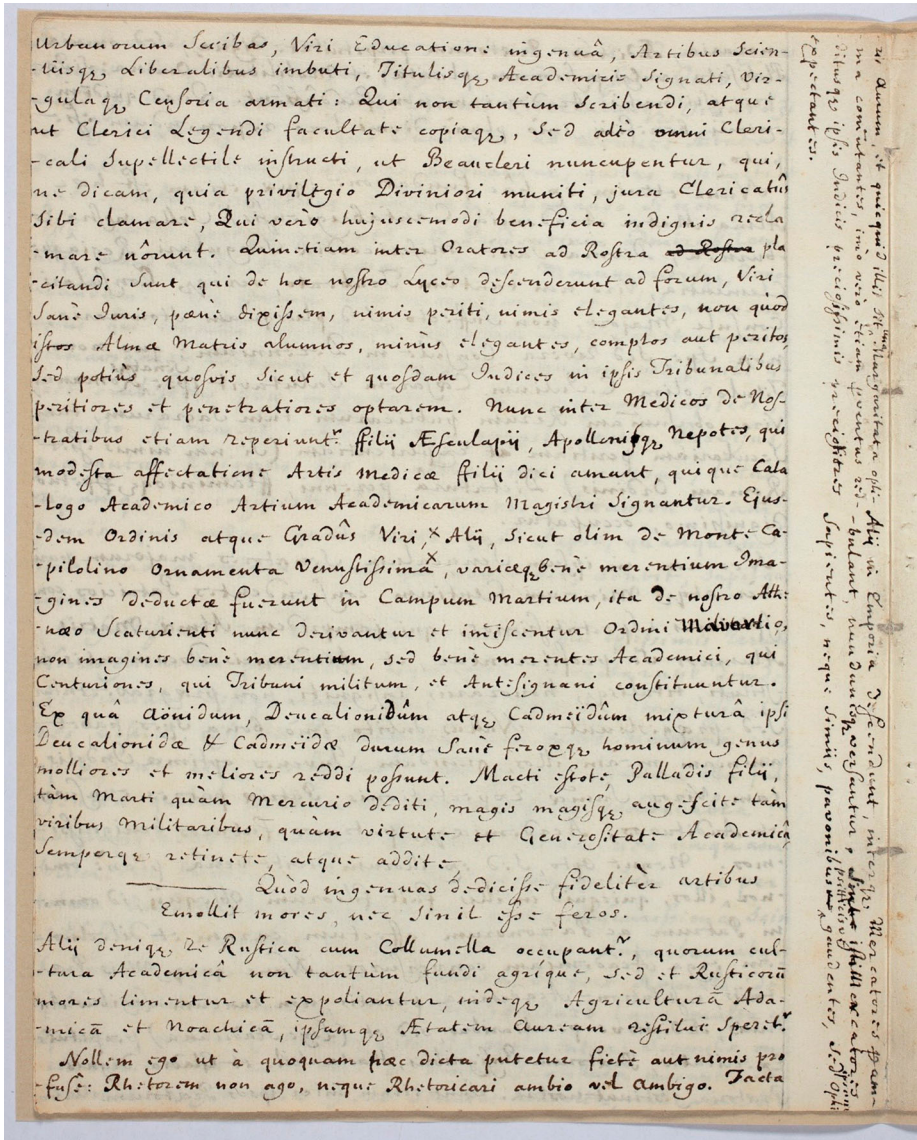 Urbanorum Scribas, Viri Educatione ingenuâ, Artibus Scien-
-tiisqȝ Liberalibus imbuti, Titulisqȝ Academicis Signati, Vir-
-gulaqȝ Censoria armati: Qui non tantùm Scribendi, atque
ut Clerici Legendi facultate copiaqȝ, Sed adèo omni Cleri-
-cali Supellectile instructi, ut Beaucleri nuncupentur, qui,
ne dicam, quia privilegio Diviniori muniti, jura Clericatûs
Sibi clamare, Qui verò hujuscemodi beneficia indignis recla
-mare nôrunt. Quinetiam inter Oratores ad Rostra ad Rostra pla
-citandi Sunt qui de hoc nostro Lyceo descenderunt ad forum, Viri
Sanè Juris, pæne dixissem, nimis periti, nimis elegantes, non quòd
istos Almæ Matris alumnos, minùs elegantes, comptos aut peritos,
Sed potiùs quosvis Sicut et quosdam Judices in ipsis Tribunalibus
peritiores et penetratiores optarem. Nunc inter Medicos de Nos-
-tratibus etiam reperiuntr. ffilij Æsculapij, Apollinisqȝ Nepotes, qui
modesta affectatione Artis medicæ ffilij dici amant, quique Cata
-logo Academico Artium Academicarum Magistri Signantur. Ejus-
-dem Ordinis atque Gradûs Viri, x Alij, Sicut olim de Monte Ca-
-pitolino Ornamenta Venustissima x, variæqȝ benè merentium Ima-
-gines deductæ fuerunt in Campum Martium, ita de nostro Athe
-næo Scaturienti nunc derivantur et im̄iscentur Ordini
non imagines benè merentium, sed benè merentes Academici, qui
Centuriones, qui Tribuni militum, et Antesignani constituuntur.
Ex quâ Aönidum, Deucalionidûm atqȝ Cadmeïdûm mixturâ ipsi
Deucalionidæ & Cadmeïdæ durum Sanè feroxqȝ hominum genus
molliores et meliores reddi possunt. Macti estote, Palladis filij,
tàm Marti quàm Mercurio dediti, magis magisqȝ augescite tàm
viribus Militaribus, quàm virtute et Generositate Academicâ,
Semperqȝ retinete, atque addite
Quòd ingenuas dedicisse fidelitèr artibus
Emollit mores, nec Sinit esse feros.
Alij deniqȝ re Rustica cum Collumella occupantr., quorum cul-
-tura Academicâ non tantùm fundi agrique, sed et Rusticorū
mores limentur et expoliantur, indeqȝ Agriculturā Ada-
-micā et Noachicā, ipsamqȝ Ætatem Auream restitui Speretr.
Nollem ego ut à quoquam hæc dicta putetur fictè aut nimis pro
-fusè: Rhetorem non ago, neque Rhetoricari ambio vel ambigo. Facta
Alij in Emporia descendunt, interqȝ Mercatores pam-
-bulant, nundinisqȝ versantur,
ut Aurum, et quicquid illis sit unq Margaritata opti-
ma com̄utantes, imò verò etiam
ditusqȝ ipsis Indicis preciosissimis preciosiores Sapientes, neque Simiis, pavonibus gaudentes, sed Ophi
expectantes.